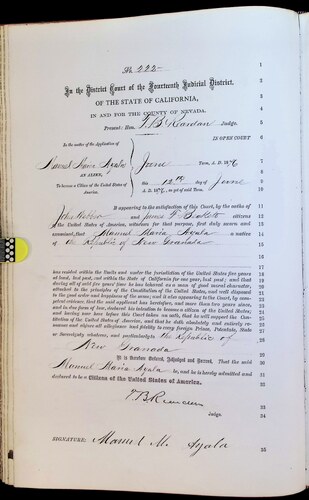 No. 222
In the District Court of the Fourteenth Judicial District.
OF THE STATE OF CALIFORNIA,
IN AND FOR THE COUNTY OF NEVADA.
Present: Hon. T B Reardan Judge.
IN OPEN COURT
In the matter of the Application of
Manuel Maria Ayala June Term, A. D. 1876
AN ALIEN,
To become a Citizen of the United States of America. this 12th day of June
A. D. 1876, as yet of said Term.
It appearing to the satisfaction of this Court, by the oaths of
John and James citizens
of the United States of America, witnesses for that purpose, first duly sworn and
examined, that Manuel Maria Ayala a native
of the Republic of New Granada
has resided within the limits and under the jurisdiction of the United States five years
at least, last past, and within the State of California for one year, last past; and that
during all of said five years' time he has behaved as a man of good moral character,
attached to the principles of the Constitution of the United States, and well disposed
to the good order and happiness of the same; and it also appearing to the Court, by com-
petent evidence, that the said applicant has heretofore, and more than two years since,
and in due form of law, declared his intention to become a citizen of the United States,
and having now here before this Court taken an oath, that he will support the Cons-
titution of the United States of America, and that he doth absolutely and entirely re-
nounce and abjure all allegiance and fidelity to every foreign Prince, Potentate, State
or Sovereignty whatever, and particularly to the Republic of
New Granada
It is therefore Ordered, Adjudged and Decreed, That the said
Manuel Maria Ayala be, and he is hereby admitted and
declared to be a Citizen of the United States of America.
T B Reardan
Judge.
SIGNATURE: Manuel M. Ayala
1
2
3
4
5
6
7
8
9
10
11
12
13
14
15
16
17
18
19
20
21
22
23
24
25
26
27
28
29
30
31
32
33
34
35